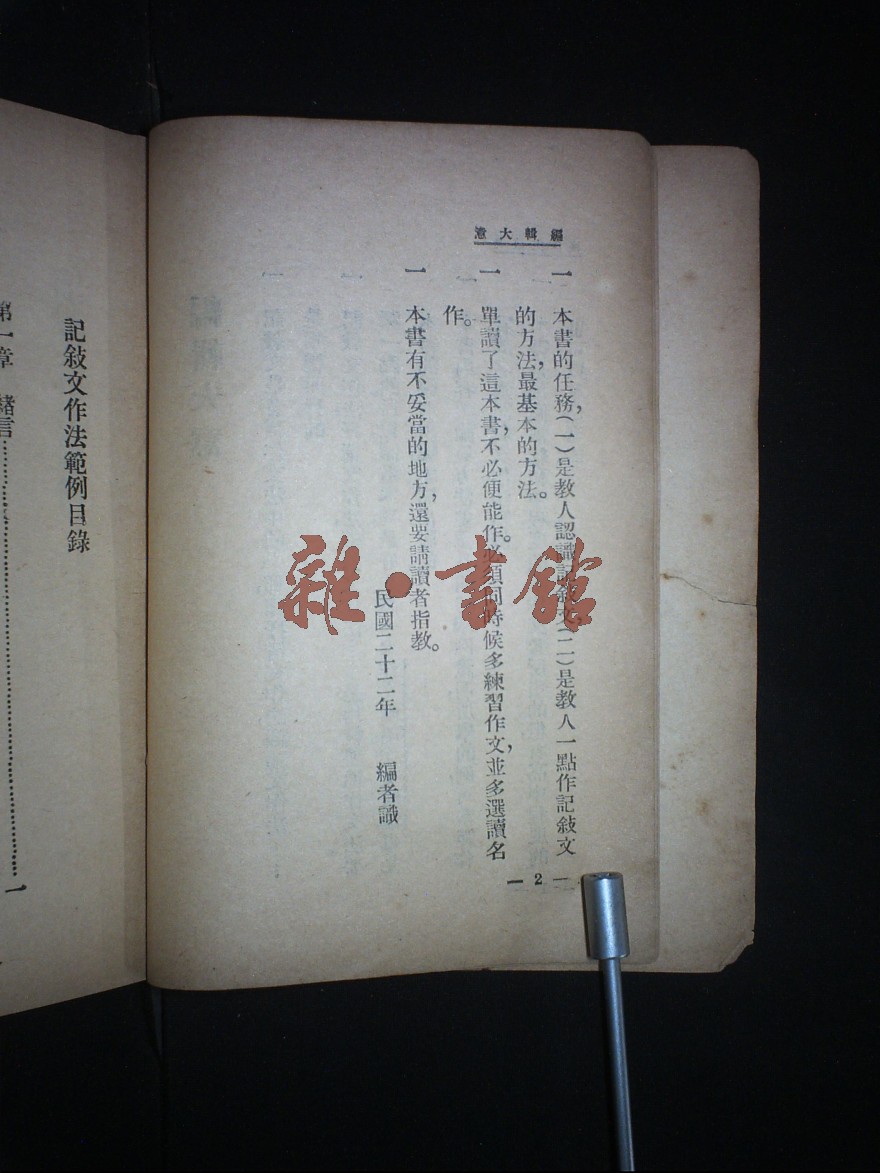 編輯大意
一 本書的任務，（一）是教人認識記敍文（二）是教人一點作記敍文
的方法，最基本的方法。
一 單讀了這本書，不必便能作。必須同時候多練習作文，並多選讀名
作。
一 本書有不妥當的地方，還要請讀者指教。
民國二十二年 編者識
— 2 —
記敍文作法範例目錄
第一章 緒言…………………………一
雜·書館